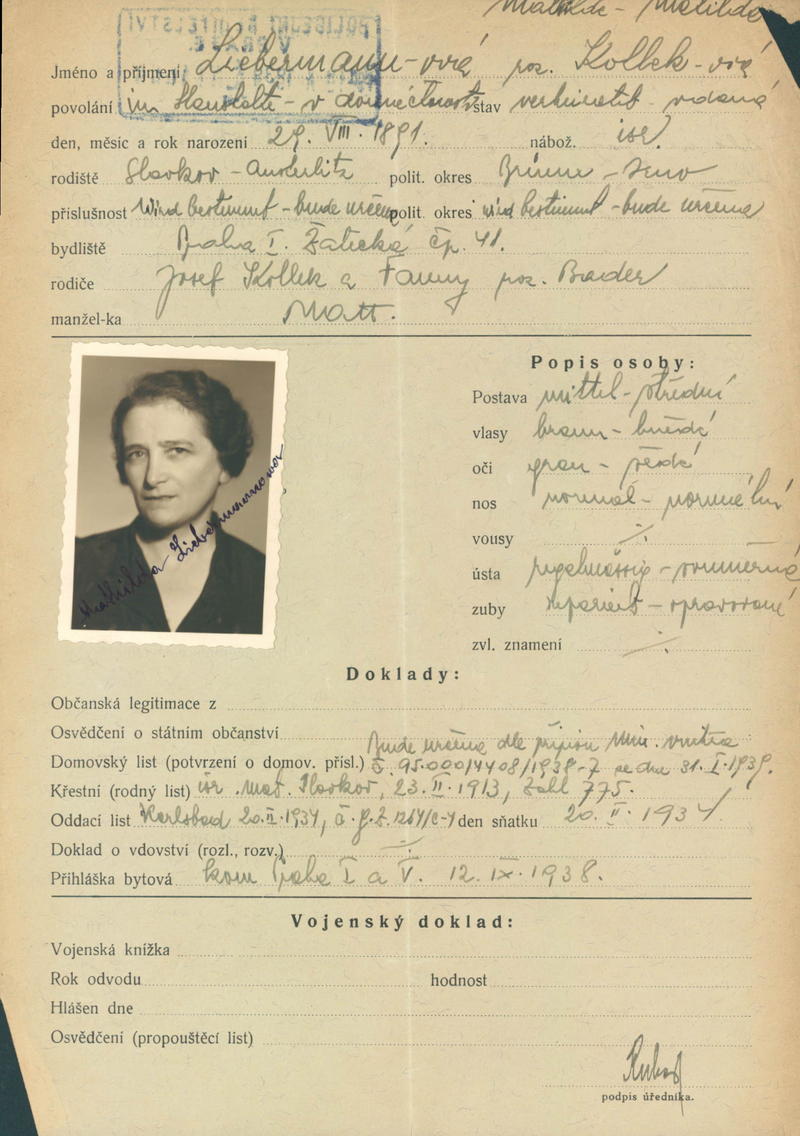 Mathilde - Matilda
Jméno a příjmení Liebermann-ová roz. Kollek-ová
povolání im Haushalte - v domácnosti stav verheiratet - vdaná
den, měsíc a rok narození 29. VIII. 1891. nábož. isr.
rodiště Slavkov - Austerlitz polit. okres Brünn - Brno
příslušnost Wird bestimmt - bude určena polit. okres wird bestimmt - bude určena
bydliště Praha I. Žatecká čp. 41.
rodiče Josef Kollek a Fanny roz. Bader
manžel-ka Matt.
Popis osoby:
Postava mittel - střední
vlasy braun - hnědé
oči grau - šedé
nos normal - normální
vousy ·/.
ústa regelmässig - souměrná
zuby repariert - opravované
zvl. znamení ·/.
Mathilda Liebermannova
Doklady:
Občanská legitimace z
Osvědčení o státním občanství
Bude určena dle přípisu Min. vnitra
Domovský list (potvrzení o domov. přísl.) č. 95.000/4408/1938-7 ze dne 31.I.1939.
Křestní (rodný list) isr. mat. Slavkov, 23.II.1913, Zahl 775.
Oddací list Karlsbad 20.II.1934, č. 1264/C-4 den sňatku 20. II. 1934
Doklad o vdovství (rozl., rozv.) ·/.
Přihláška bytová kom Praha I a V. 12. IX. 1938.
Vojenský doklad:
Vojenská knížka
Rok odvodu hodnost
Hlášen dne
Osvědčení (propouštěcí list)
podpis úředníka.